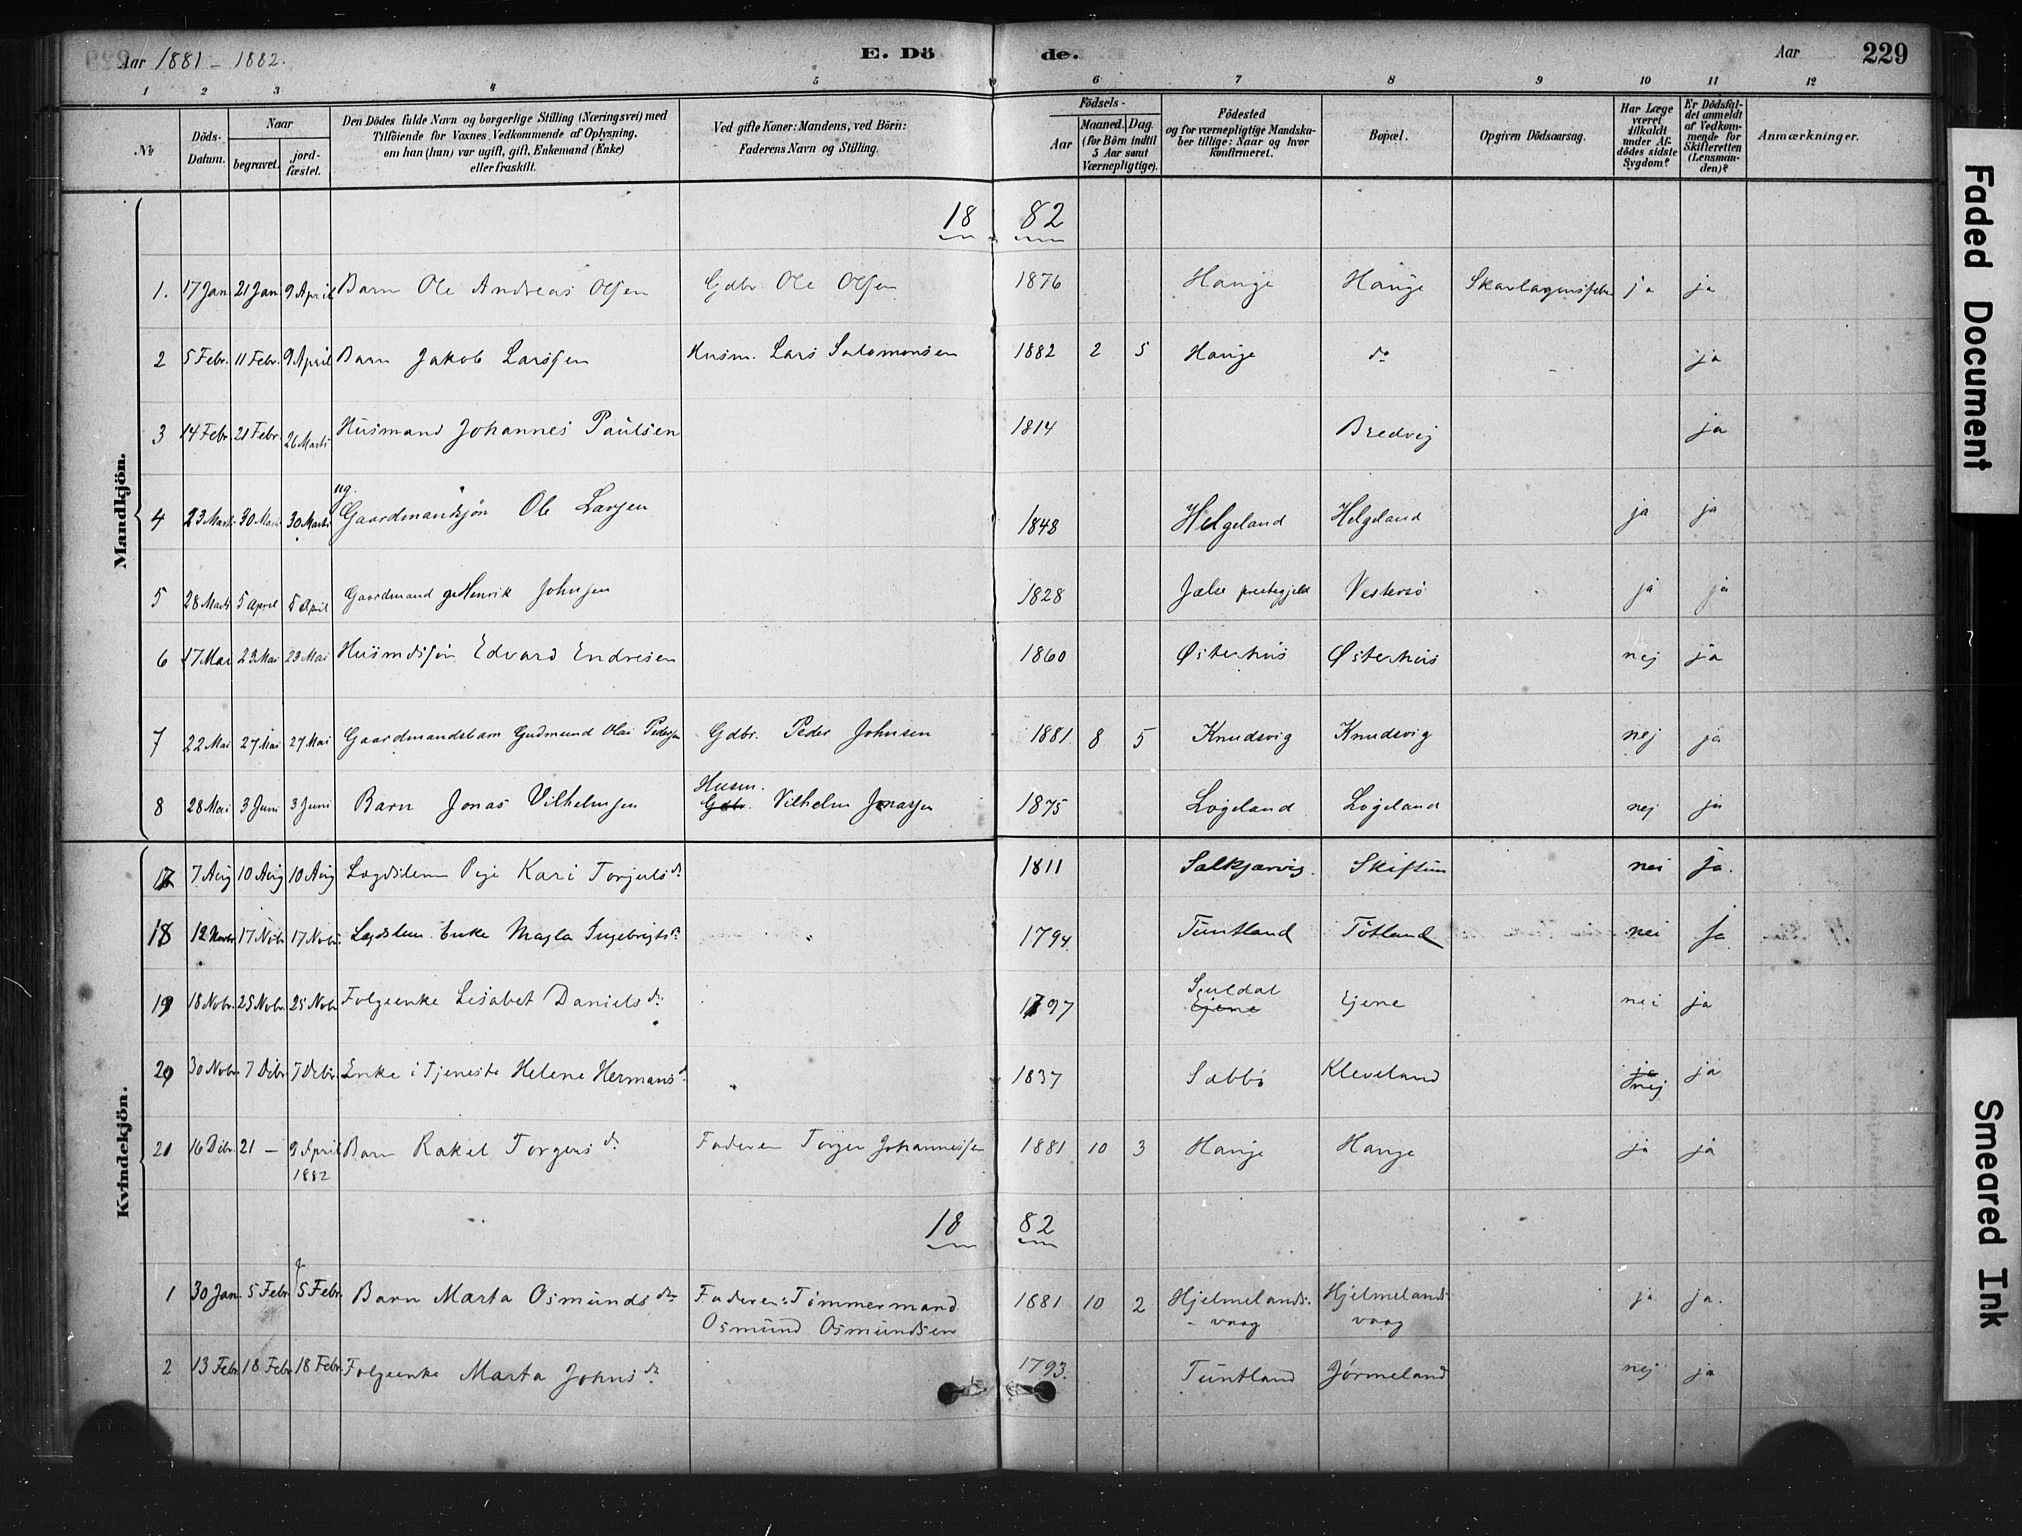 Aar 1881 - 1882.
E. Dö de.
Aar
229
1 2 3 4 5 6 7 8 9 10 11 12
No
Döds-Datum.
Naar
begravet.
jord-fæstet.
Den Dödes fulde Navn og borgerlige Stilling (Næringsvei) med
Tilföiende for Voxnes Vedkommende af Oplysning,
om han (hun) var ugift, gift, Enkemand (Enke)
eller fraskilt.
Ved gifte Koner: Mandens, ved Börn:
Faderens Navn og Stilling.
Födsels-
Aar
Maaned. Dag.
(for Börn indtil
5 Aar samt
Værnepligtige).
Födested
og for værnepligtige Mandska-
ber tillige: Naar og hvor
konfirmeret.
Bopæl.
Opgiven Dödsaarsag.
Har Læge
været
tilkaldt
under Af-
dödes sidste
Sygdom?
Er Dödsfal-
det anmeldt
af Vedkom-
mende for
Skifteretten
(Lensman-
den)?
Anmærkninger.
Mandkjön.
18 82
1. 17 Jan 21 Jan 9 April Barn Ole Andreas Olsen Gdbr. Ole Olsen 1876 Hauge Hauge Skarlagensfeber ja ja
2 5 Febr. 11 Febr. 9 April Barn Jakob Larssen Husm. Lars Salomonsen 1882 2 5 Hauge do ja
3 14 Febr. 21 Febr. 26 Marts Husmand Johannes Paulsen 1814 Bredvig ja
ug.
4 23 Marts 30 Marts 30 Marts Gaardmandssøn Ole Larsen 1848 Helgeland Helgeland ja ja
5 28 Marts 5 April 5 April Gaardmand g. Henrik Johnsen 1828 Jælse prestegjeld Vestersø ja ja
6 17 Mai 23 Mai 23 Mai Husmdssøn Edvard Endresen 1860 Østerhus Østerhus nej ja
7 22 Mai 27 Mai 27 Mai Gaardmandsbarn Gudmund Olai Pedersen Gdbr. Peder Johnsen 1881 8 5 Knudsvig Knudsvig nej ja
Husm.
8 28 Mai 3 Juni 3 Juni Barn Jonas Vilhelmsen Gdbr. Vilhelm Jonassen 1875 Løgeland Løgeland nej ja
Kvindekjön.
17 7 Aug 10 Aug 10 Aug Lægdslem Pige Kari Torjuls dr 1811 Sølkjærvig. Skiftun nei ja.
18 12 Novbr 17 Nobr. 17 Nobr. Lægdslem. Enke Magla Ingebrigts dr 1794. Tuntland Tøtland nei ja
19 18 Nobr. 25 Nobr. 25 Nobr Folgeenke Lisabet Daniels dr 1797 Suldal
Ejene Ejene nei ja
20 30 Nobr. 7 Debr. 7 Debr. Enke i Tjeneste Helene Hermans d. 1837 Sæbbø Kleveland ja
nej ja
21 16 Debr. 21 — 9 April
1882 Barn Rakel Torgers dr Faderen Torger Johannessen 1881 10 3 Hauge Hauge ja ja
18 82
1 30 Jan. 5 Febr 5 Febr. Barn Marta Osmunds dr Faderen: Tømmermand
Osmund Osmundsen 1881 10 2 Hjelmelands-
vaag Hjelmelands-
vaag ja ja.
2 13 Febr 18 Febr. 18 Febr. Folgeenke Marta Johns dr 1793. Tuntland Jørmeland nej ja
Faded Document
Smeared Ink